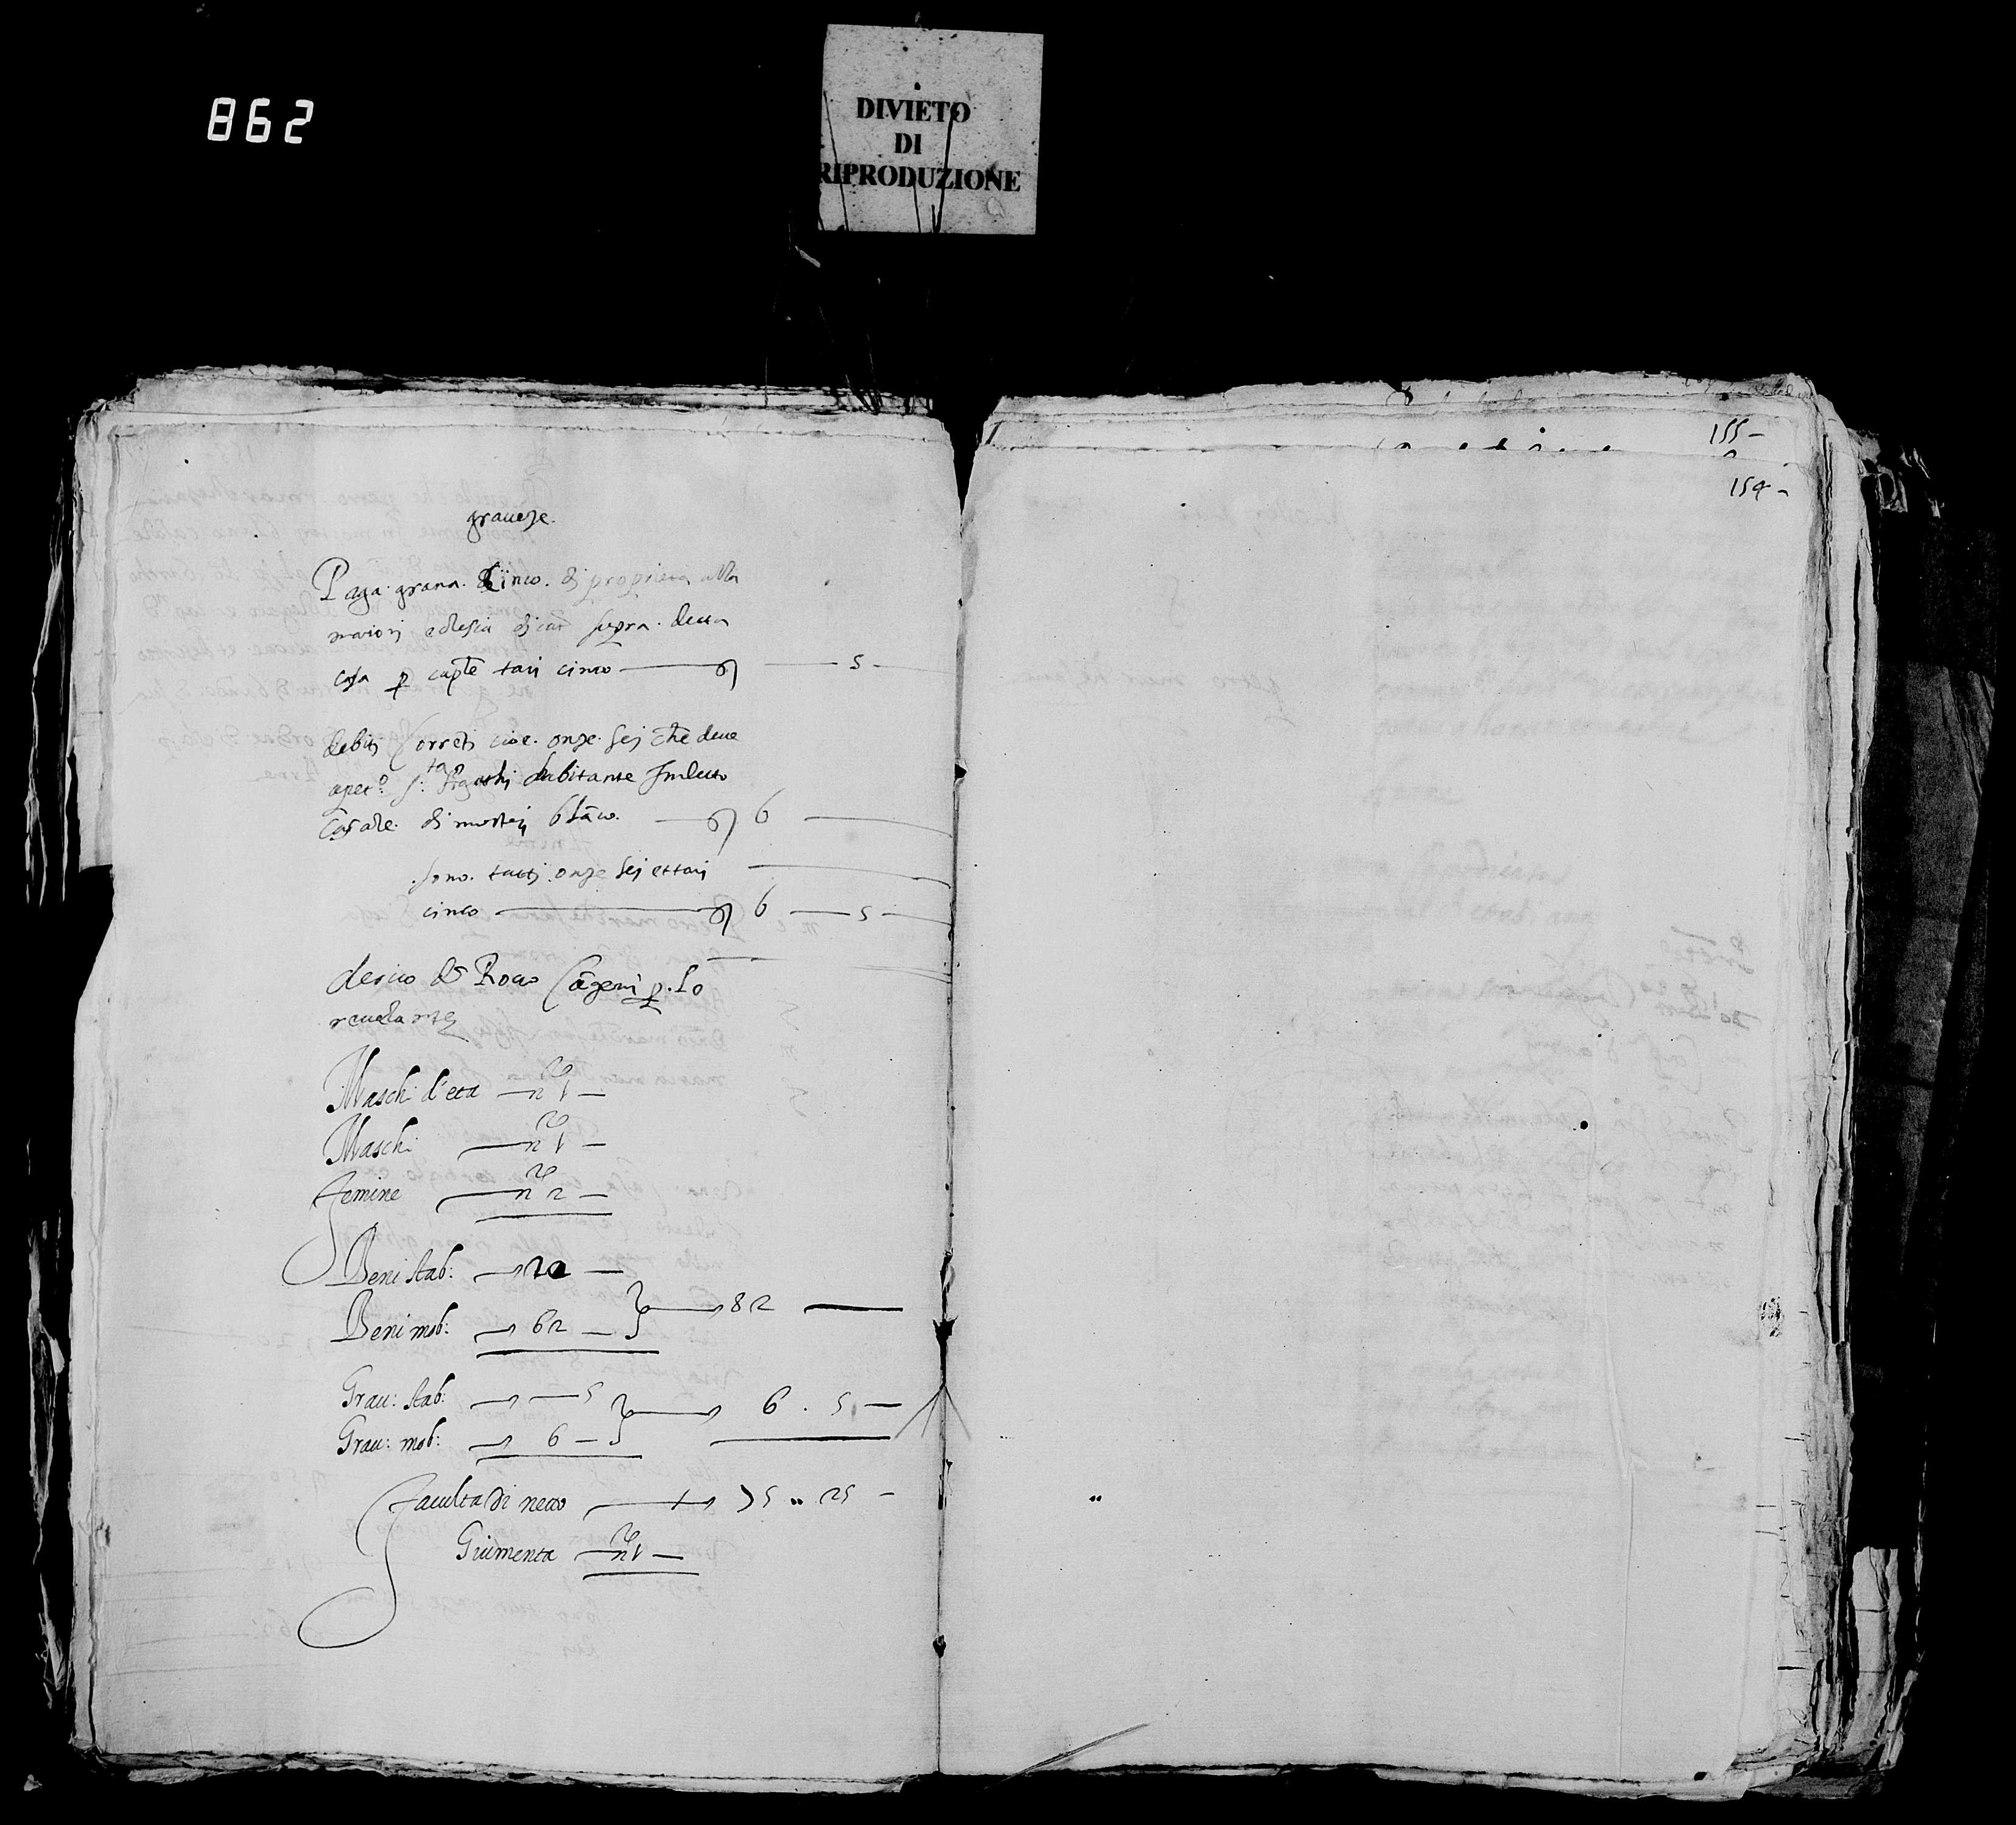 862
DIVIETO
DI
RIPRODUZIONE
155-
154-
graueze.
Paga grana. Cinco. di proprieta alla
maiori eclesia di supra. detta
casa p caple tari cinco — 5 —
debiti Correti cioe. onze. sei che deue
apet.o habitante Indetto
Casale di 6 —
sono. tutti onze sei ettari
cinco — 6 — 5 —
clerico Rocco p. Lo
reuelante
Maschi d'eta — n.ro 1 —
Maschi — n.ro 1 —
femine — n.ro 2 —
Beni stab: — 20 —
Beni mob: — 62 — 82 —
Grau: stab: — — 5
Grau: mob: — 6 — 6 . 5 —
faculta di netto — 75 .. 25 —
Giumenta — n.ro 1 —